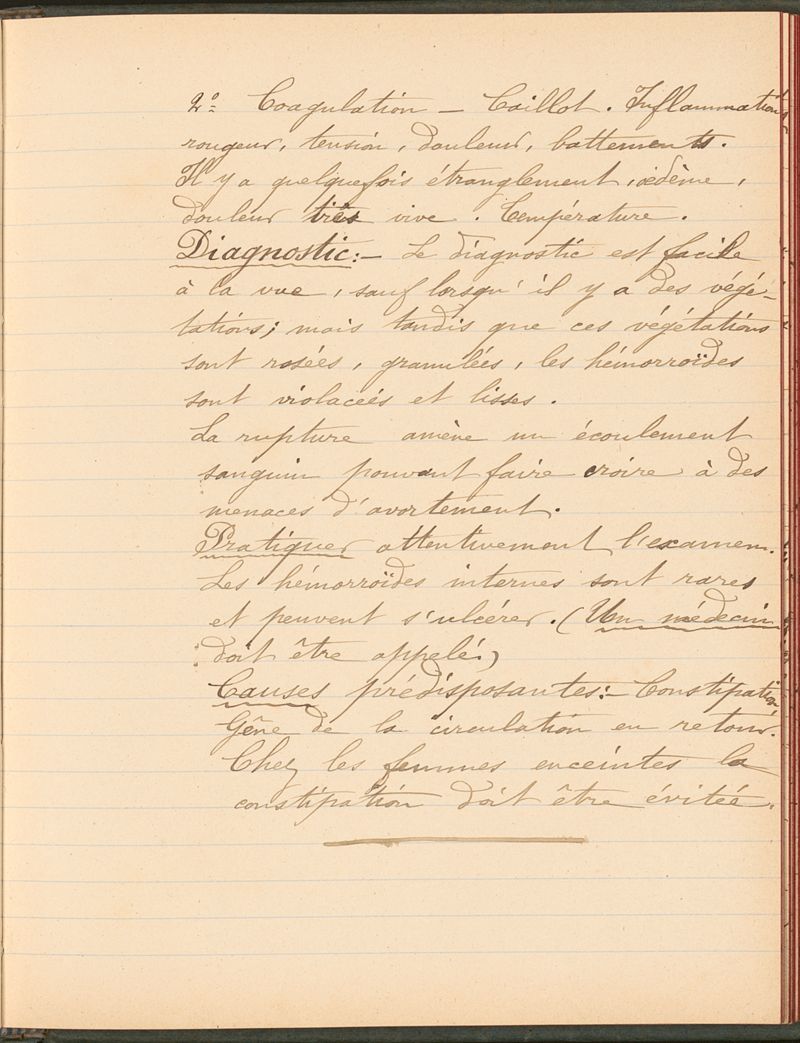 2º Coagulation – Caillot. Inflammation,
rougeur, tension, douleur, battements.
Il y a quelquefois étranglement, œdème,
douleur très vive. Température.
Diagnostic:– Le diagnostic est facile
à la vue, sauf lorsqu'il y a des végé-
tations; mais tandis que ces végétations
sont rosées, granulées, les hémorroïdes
sont violacées et lisses.
La rupture amène un écoulement
sanguin pouvant faire croire à des
menaces d'avortement.
Pratiquer attentivement l'examen.
Les hémorroïdes internes sont rares
et peuvent s'ulcérer. (Un médecin
doit être appelé.)
Causes prédisposantes:– Constipation
Gêne de la circulation en retour.
Chez les femmes enceintes la
constipation doit être évitée.